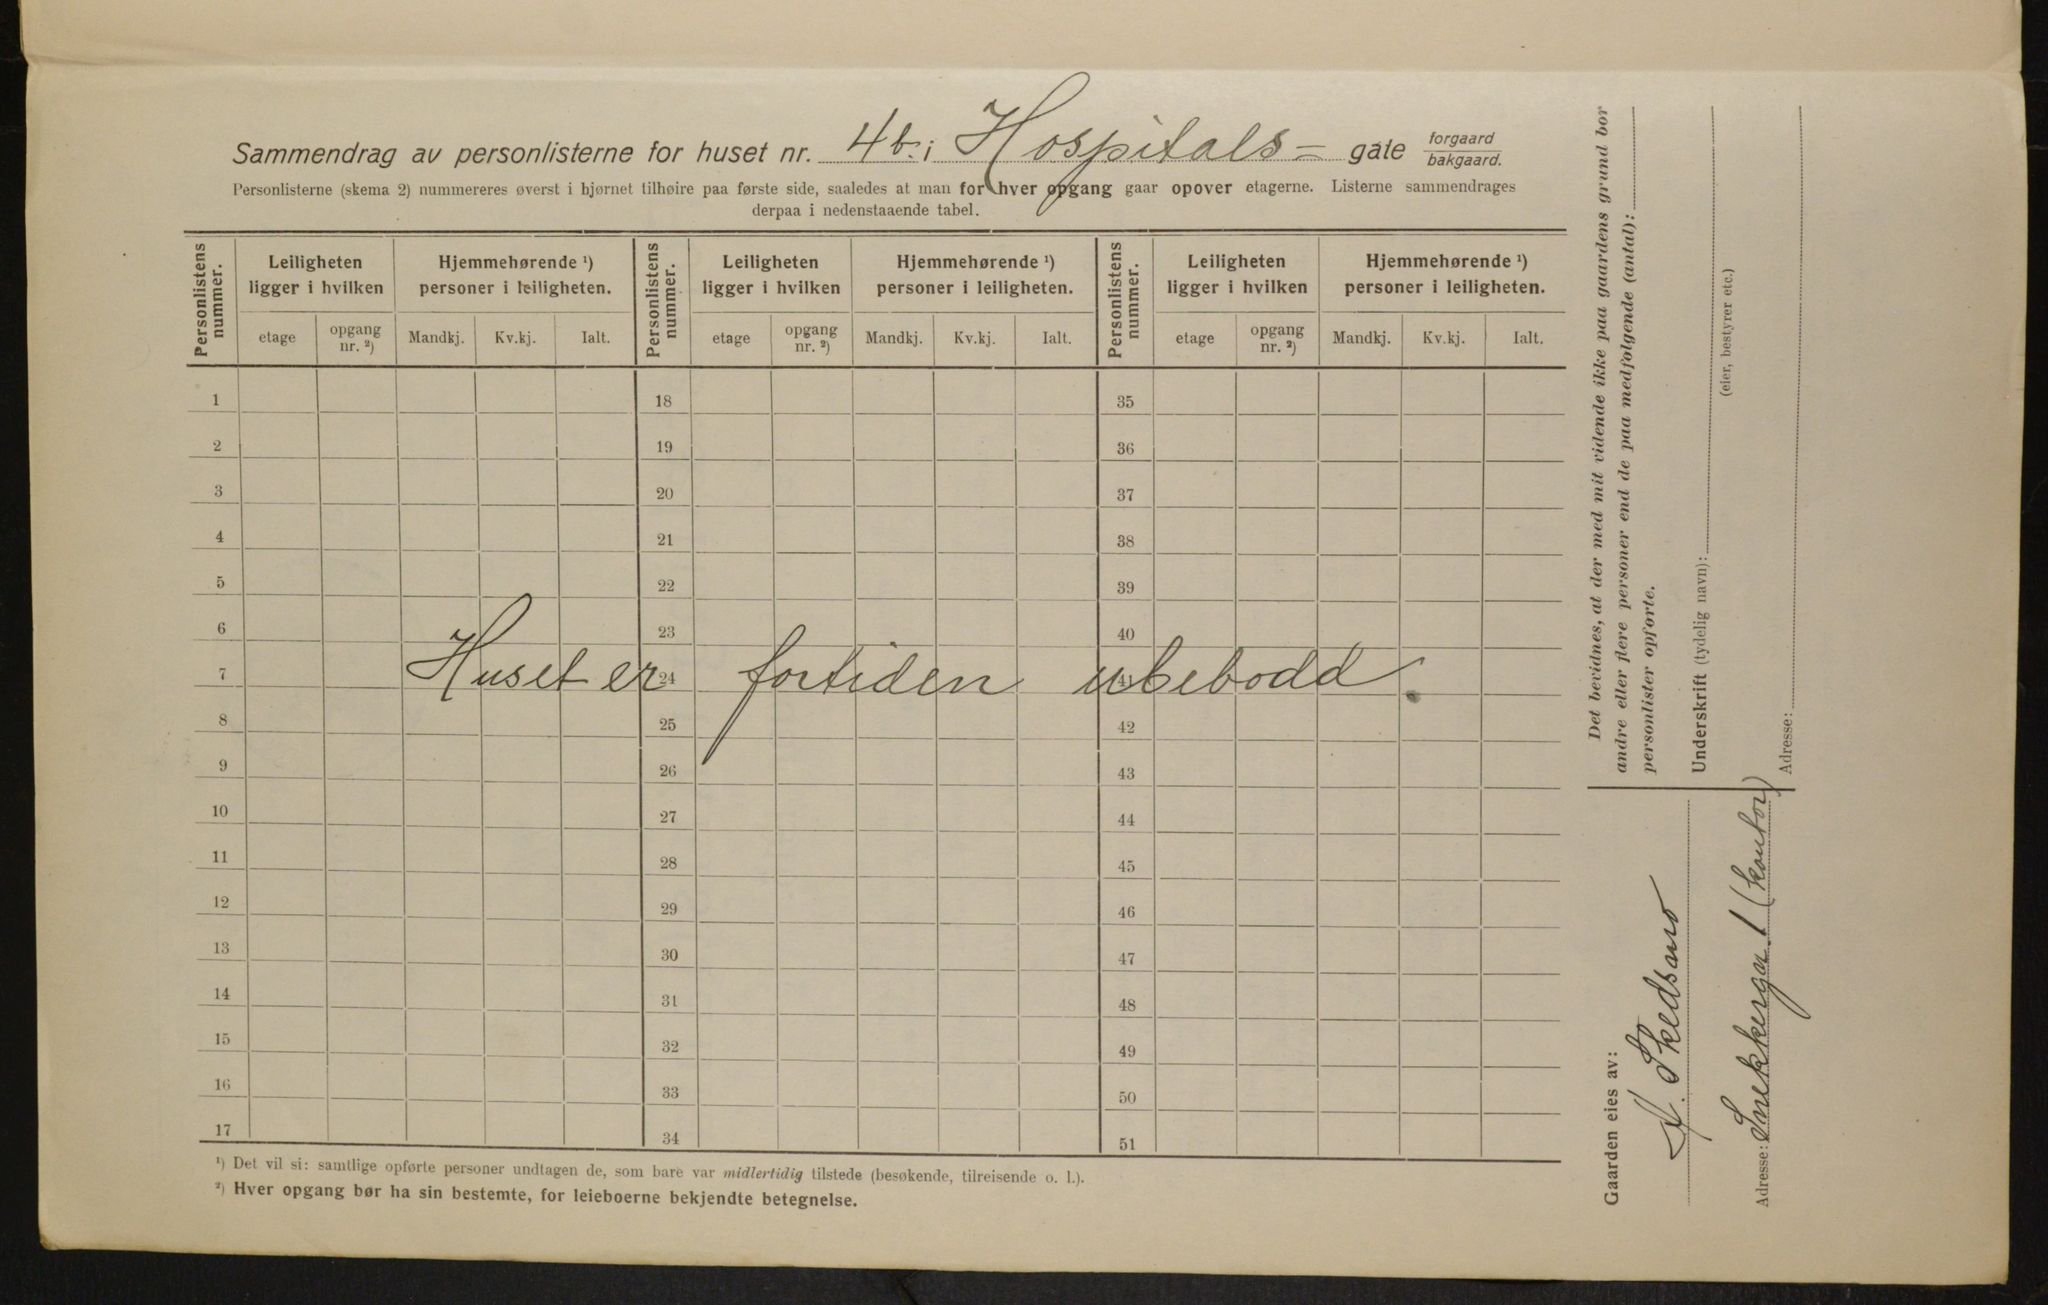 Sammendrag av personlisterne for huset nr. 4b. i Hospitals- gate forgaard bakgaard.
Personlisterne (skema 2) nummereres øverst i hjørnet tilhøire paa første side, saaledes at man for hver opgang gaar opover etagerne. Listerne sammendrages
derpaa i nedenstaaende tabel.
Personlistens nummer. Leiligheten ligger i hvilken Hjemmehørende ¹) personer i leiligheten. Personlistens nummer. Leiligheten ligger i hvilken Hjemmehørende ¹) personer i leiligheten. Personlistens nummer. Leiligheten ligger i hvilken Hjemmehørende ¹) personer i leiligheten.
etage opgang nr. ²) Mandkj. Kv.kj. Ialt. etage opgang nr. ²) Mandkj. Kv.kj. Ialt. etage opgang nr. ²) Mandkj. Kv.kj. Ialt.
1 18 35
2 19 36
3 20 37
4 21 38
5 22 39
6 23 40
7 24 41
Huset er fortiden ubebodd.
8 25 42
9 26 43
10 27 44
11 28 45
12 29 46
13 30 47
14 31 48
15 32 49
16 33 50
17 34 51
¹) Det vil si: samtlige opførte personer undtagen de, som bare var midlertidig tilstede (besøkende, tilreisende o. l.).
²) Hver opgang bør ha sin bestemte, for leieboerne bekjendte betegnelse.
Det bevidnes, at der med mit vidende ikke paa gaardens grund bor
andre eller flere personer end de paa medfølgende (antal):
personlister opførte.
Underskrift (tydelig navn):
(eier, bestyrer etc.)
Adresse:
Gaarden eies av:
Skedsmo
Adresse: Snekkergt 1 (kontor)